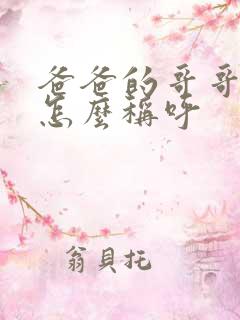 爸爸的哥哥
怎麼稱呼
翁貝托